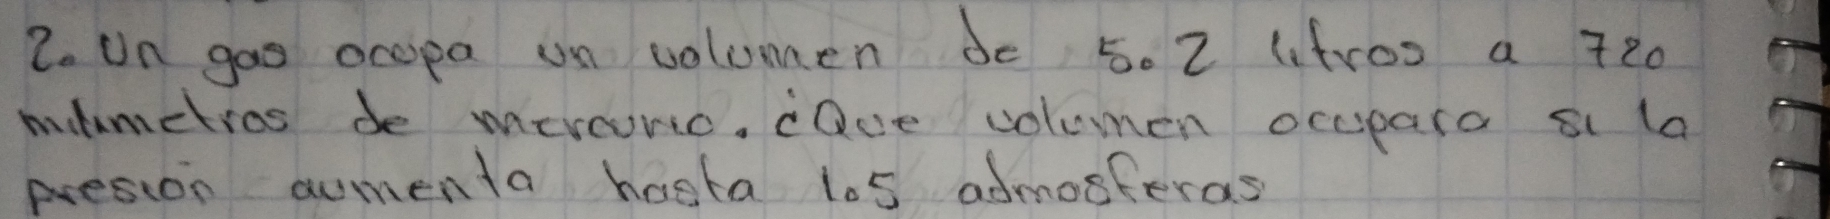 2. Un gas ocupa un volumen de 5.2 litros a 720
milimetros de mercurio. ¿Que volumen ocupara si la
presión aumenta hasta 1.5 admosferas